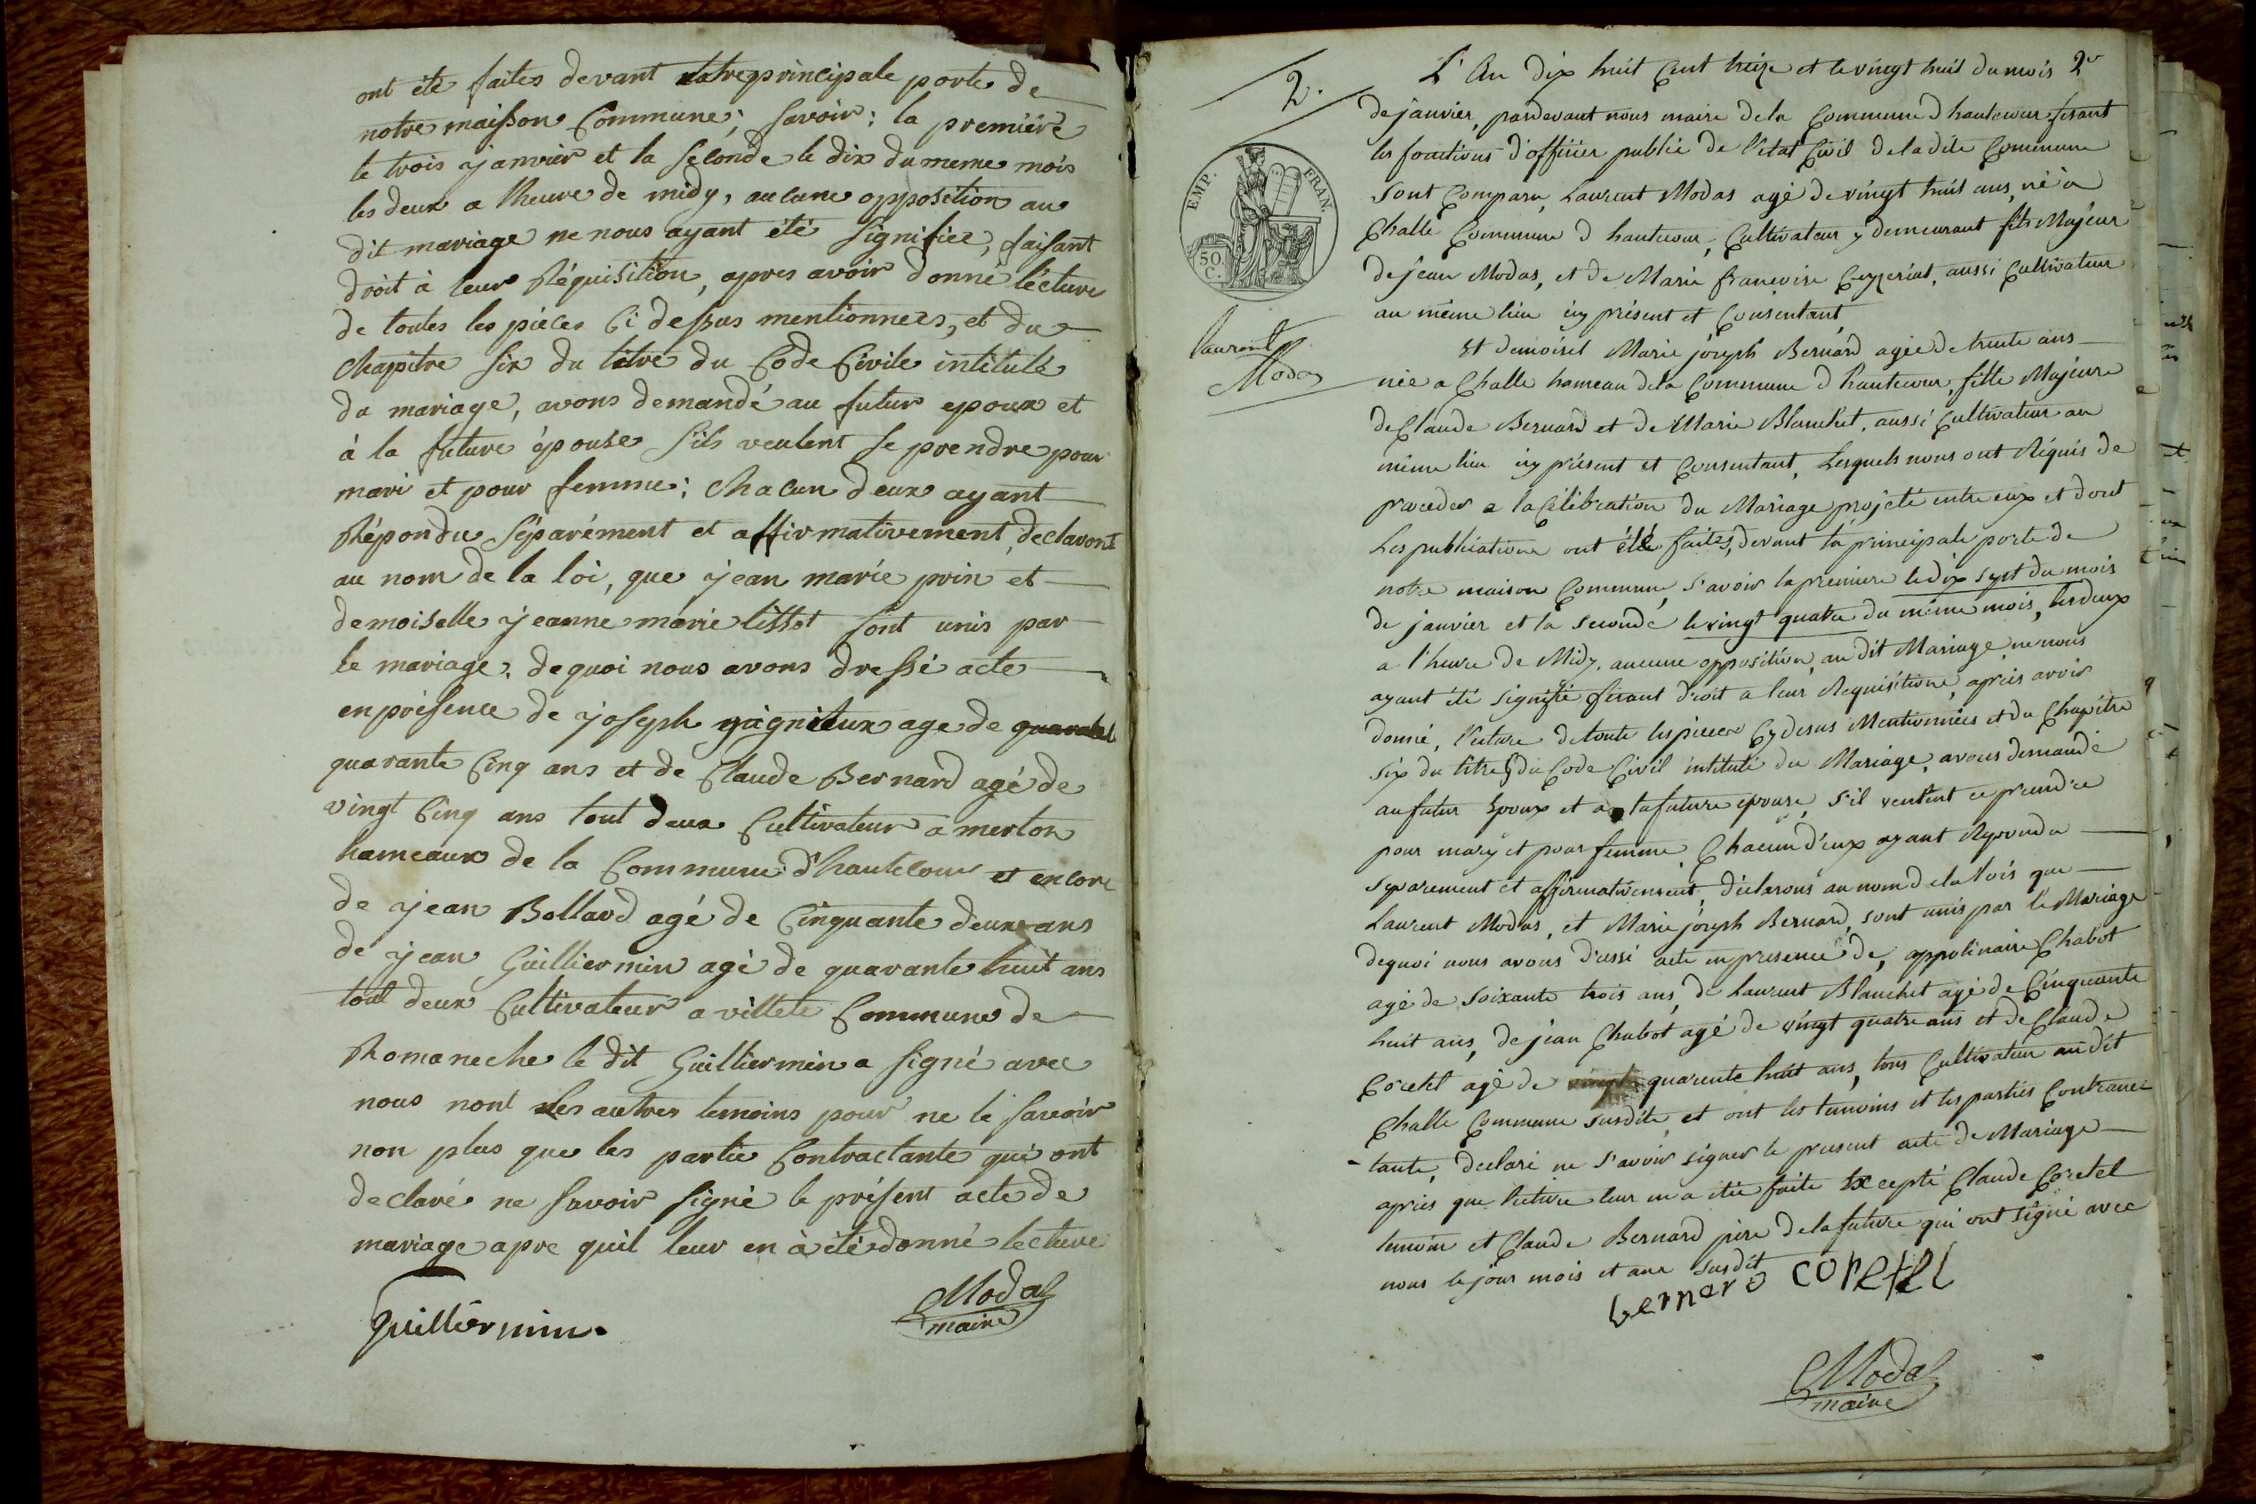 ont été faites devant notre principale porte de
notre maisson Commune; savoir: la première
le trois janvier et la seconde le dix du meme mois
les deux a lheure de midy, aucune opposition au
dit mariage ne nous ayant été signifiée, faisant
droit à leur Réquisition, apres avoir donné lécture
de toutes les piéces Ci dessus mentionnees, et du
chapitre six du titre du Code Civile intitulé
du mariage, avons demandé au futur epoux et
à la future épouse s'ils veulent se prendre pour
mari et pour femme; chacun deux ayant
Répondu séparément et affirmativement, declarons
au nom de la loi, que jean marie prin et
demoiselle jeanne marie tissot sont unis par
le mariage, de quoi nous avons dressé acte
en présence de joseph gagnieux age de
quarante Cinq ans et de Claude Bernard agé de
vingt Cinq ans tout deux Cultivateur a merlon
hameaux de la Commune d'hautecour et encore
de jean Bollard agé de Cinquante deux ans
de jean Guilliermin agé de quarante huit ans
tout deux Cultivateur a villete Commune de
Romaneche le dit Guilliermin a signé avec
nous nont les autres temoins pour ne le savoir
non plus que les partie Contractante qui ont
declaré ne savoir signé le présent acte de
mariage apre quil leur en à été donné lecture
Guilliermin.
Modas
maire
2.
EMP. FRAN.
50.
C.
Laurent
Modas
L'An dix huit Cent treize et le vingt huit du mois 2e
de janvier, pardevant nous maire dela Commune d hautecour fesant
les fonctions d'officier public de l'état Civil de la dite Commune
sont Comparu, Laurent Modas agé de vingt huit ans, né à
Challe Commune d hautecour, Cultivateur y demeurant fils Majeur
de jean Modas, et de Marie françoise Ceyzeriat, aussi Cultivateur
au même lieu icy présent et Consentant,
Et demoisel Marie joseph Bernard agée de trente ans
née a Challe hameau dela Commune d hautecour, fille Majeure
de Claude Bernard et de Marie Blanchet, aussi Cultivateur au
même lieu icy présent et Consentant, Lesquels nous ont Réquis de
proceder a la Célébration du Mariage projeté entre eux et dont
Les publications ont été faites, devant la principale porte de
notre maison Commune, s'avoir la premiere le dix sept du mois
de janvier et la seconde le vingt quatre du même mois, les deux
a l'heure de Midy, aucune opposition, au dit Mariage ne nous
ayant été signifié fesant droit a leur Requisitions, après avoir
donné, l'ecture de toute les pieces Cy desus Mentionnées et du Chapitre
six du titre 5 du Code Civil intitulé du Mariage, avons demandé
au futur Epoux et a la future epouse, s'il veulent ce prendre
pour mary et pour femme, Chacun d'eux ayant Repondu
separement et affirmativement, déclarons au nom de la lois que
Laurent Modas, et Marie joseph Bernard, sont unis par le Mariage
dequoi nous avons d'ressé acte en presence de, appolinaire Chabot
agé de soixante trois ans, de Laurent Blanchet agé de Cinquante
huit ans, de jean Chabot agé de vingt quatre ans et de Claude
Coretel agé de vingt quarente huit ans, tous Cultivateur au dit
Challe Commune susdite, et ont les temoins et les parties Contrac-
tante, declaré ne s'avoir signer le present acte de Mariage
après que l'ecture leur en a été faite Excepté Claude Coretel
temoin et Claude Bernard père de la future qui ont signé avec
nous le jour mois et ans susdit
bernard coretel
Modas
maire